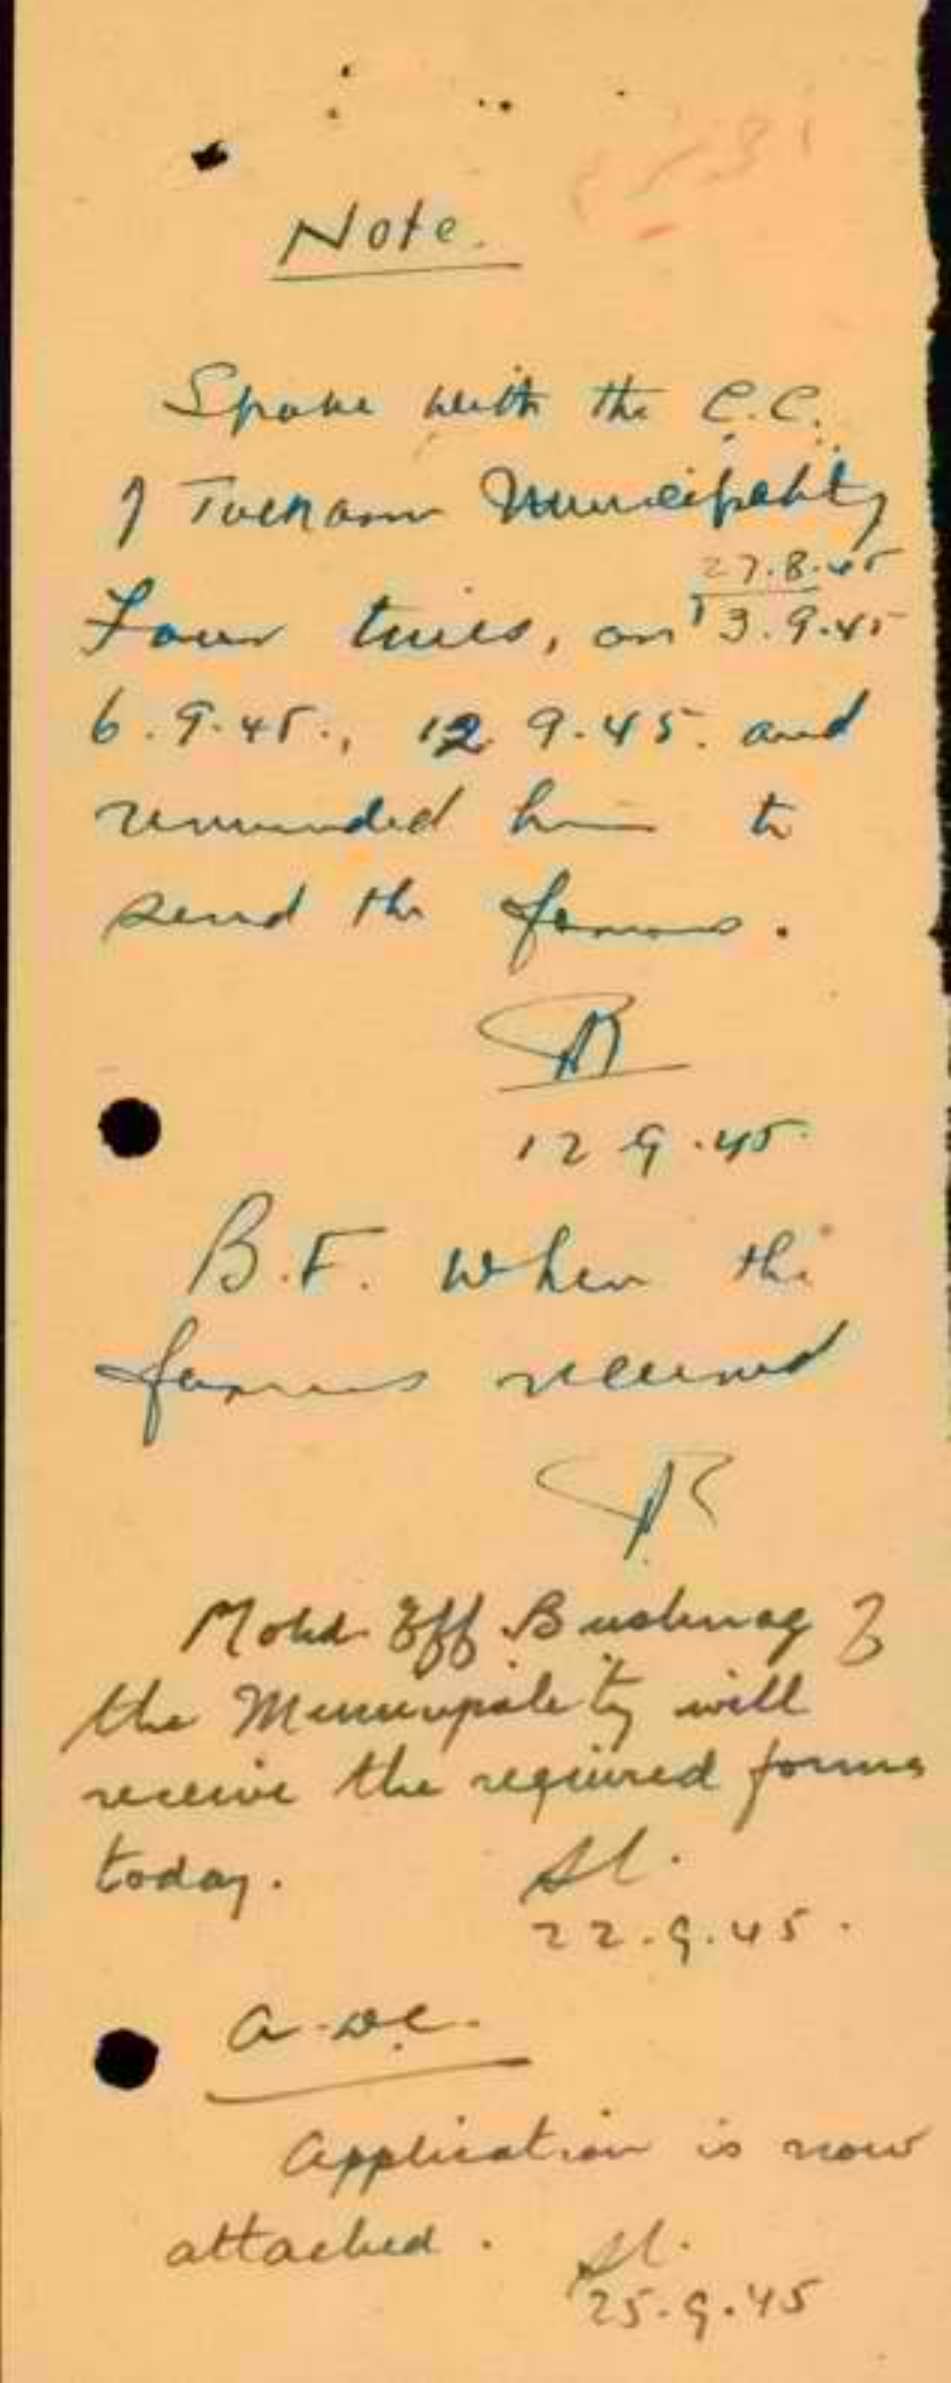 Note.
Spoke with the C.C.
of Tulkarm Municipality
27.8.45
Four times, on 3.9.45
6.9.45., 12.9.45. and
reminded him to
send the forms.
12.9.45.
B.F. when the
forms received
Mohd Eff. Bushnaq of
the Municipality will
receive the required forms
today.
22.9.45.
A.D.C.
Application is now
attached.
25.9.45